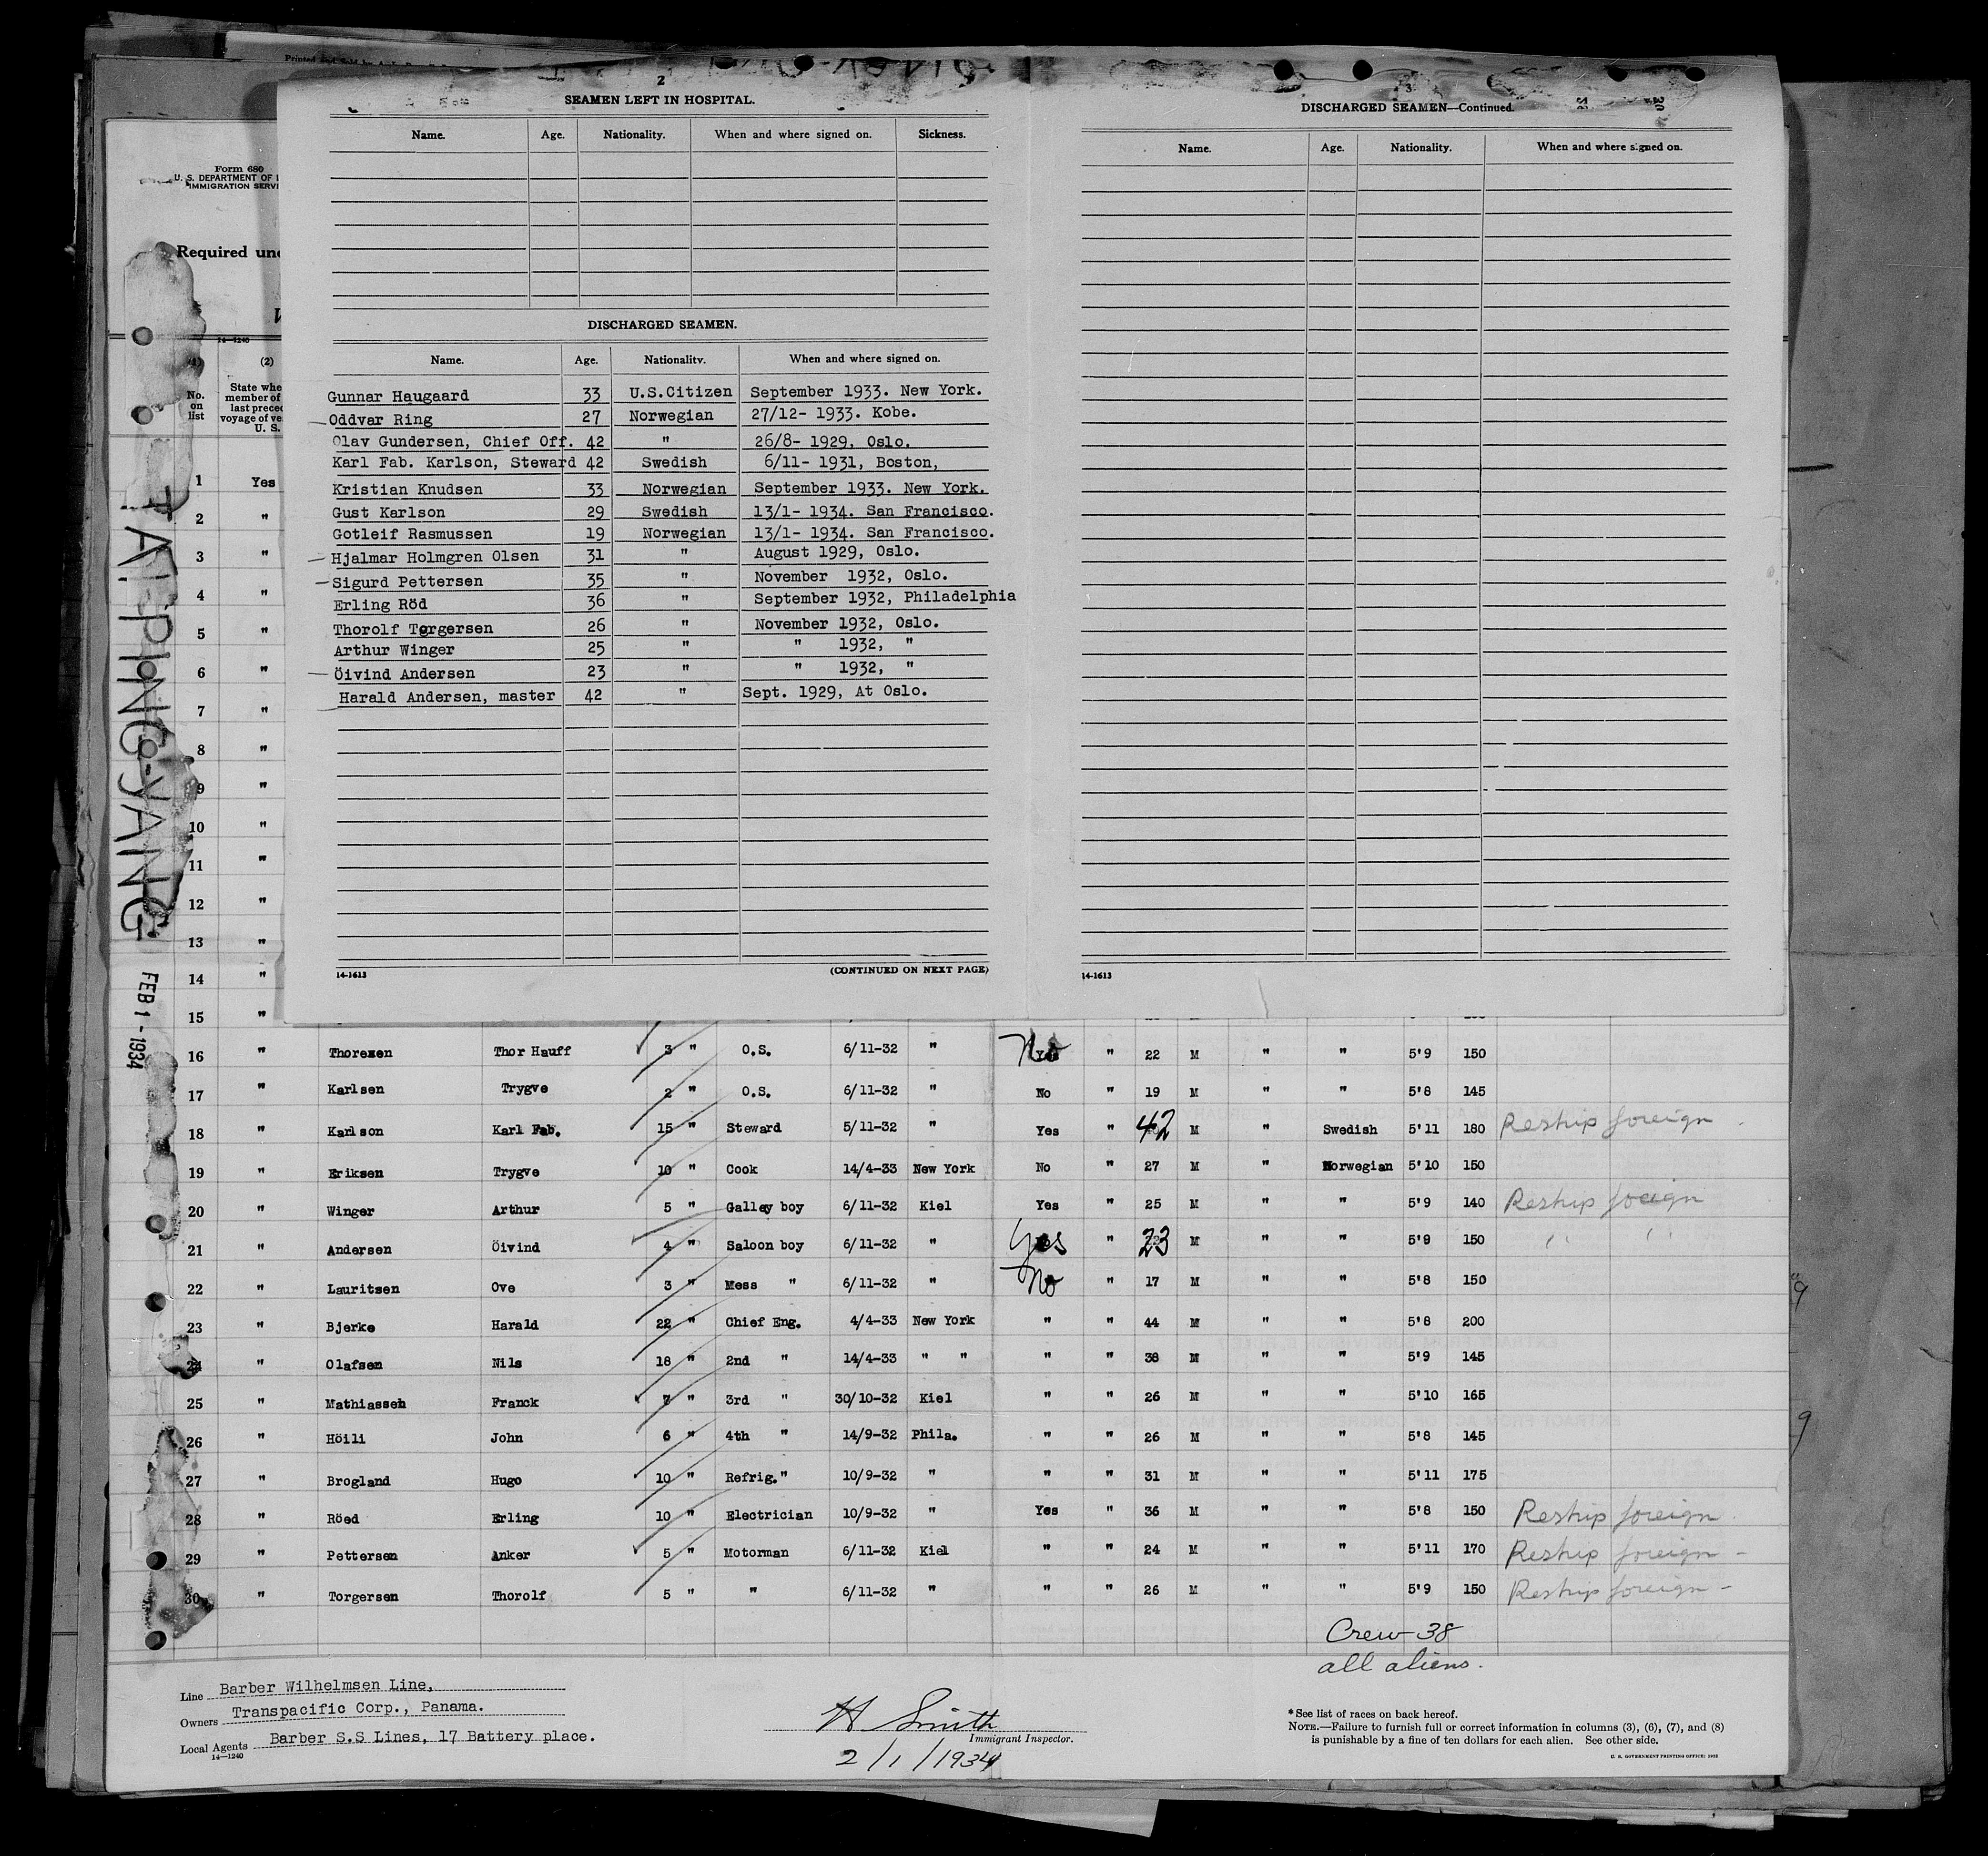 2
SEAMEN LEFT IN HOSPITAL.
Name. Age. Nationality. When and where signed on. Sickness.
DISCHARGED SEAMEN.
Name. Age. Nationality. When and where signed on.
Gunnar Haugaard 33 U.S.Citizen September 1933. New York.
Oddvar Ring 27 Norwegian 27/12- 1933. Kobe.
Olav Gundersen, Chief Off. 42 " 26/8- 1929, Oslo.
Karl Fab. Karlson, Steward 42 Swedish 6/11- 1931, Boston,
Kristian Knudsen 33 Norwegian September 1933. New York.
Gust Karlson 29 Swedish 13/1- 1934. San Francisco.
Gotleif Rasmussen 19 Norwegian 13/1- 1934. San Francisco.
Hjalmar Holmgren Olsen 31 " August 1929, Oslo.
Sigurd Pettersen 35 " November 1932, Oslo.
Erling Röd 36 " September 1932, Philadelphia
Thorolf Torgersen 26 " November 1932, Oslo.
Arthur Winger 25 " " 1932, "
Öivind Andersen 23 " " 1932, "
Harald Andersen, master 42 " Sept. 1929, At Oslo.
14-1613 (CONTINUED ON NEXT PAGE)
3
DISCHARGED SEAMEN—Continued.
Name. Age. Nationality. When and where signed on.
14-1613
Form 680
U. S. DEPARTMENT OF
IMMIGRATION SERVI
Required und
14—1240
(1) (2)
No. on list
State whe
member of
last prece
voyage of ve
U. S.
1 Yes
2 "
3 "
4 "
5 "
6 "
7 "
8 "
9 "
10 "
11 "
12 "
13 "
14 "
15 "
TAI PING YANG
FEB 1 - 1934
16 " Thoresen Thor Hauff 3 " O.S. 6/11-32 " No " 22 M " " 5'9 150
17 " Karlsen Trygve 2 " O.S. 6/11-32 " No " 19 M " " 5'8 145
18 " Karlson Karl Fab. 15 " Steward 5/11-32 " Yes " 42 M " Swedish 5'11 180 Reship foreign
19 " Eriksen Trygve 10 " Cook 14/4-33 New York No " 27 M " Norwegian 5'10 150
20 " Winger Arthur 5 " Galley boy 6/11-32 Kiel Yes " 25 M " " 5'9 140 Reship foreign
21 " Andersen Öivind 4 " Saloon boy 6/11-32 " Yes " 23 M " " 5'9 150 " "
22 " Lauritsen Ove 3 " Mess " 6/11-32 " No " 17 M " " 5'8 150
23 " Bjerke Harald 22 " Chief Eng. 4/4-33 New York " " 44 M " " 5'8 200
24 " Olafsen Nils 18 " 2nd " 14/4-33 " " " " 38 M " " 5'9 145
25 " Mathiassen Franck 7 " 3rd " 30/10-32 Kiel " " 26 M " " 5'10 165
26 " Höili John 6 " 4th " 14/9-32 Phila. " " 26 M " " 5'8 145
27 " Brogland Hugo 10 " Refrig." 10/9-32 " " " 31 M " " 5'11 175
28 " Röed Erling 10 " Electrician 10/9-32 " Yes " 36 M " " 5'8 150 Reship foreign
29 " Pettersen Anker 5 " Motorman 6/11-32 Kiel " " 24 M " " 5'11 170 Reship foreign -
30 " Torgersen Thorolf 5 " " 6/11-32 " " " 26 M " " 5'9 150 Reship foreign -
Crew 38
all aliens.
Line Barber Wilhelmsen Line,
Owners Transpacific Corp., Panama.
Local Agents Barber S.S Lines, 17 Battery place.
14—1240
H Smith
Immigrant Inspector.
2/1/1934
*See list of races on back hereof.
NOTE.—Failure to furnish full or correct information in columns (3), (6), (7), and (8)
is punishable by a fine of ten dollars for each alien. See other side.
U. S. GOVERNMENT PRINTING OFFICE: 1932